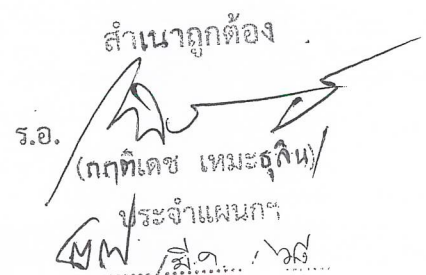 สำเนาถูกต้อง
ร.อ.
(กฤติเดช เหมะธุลิน)
ประจำแผนกฯ
/มี.ค./